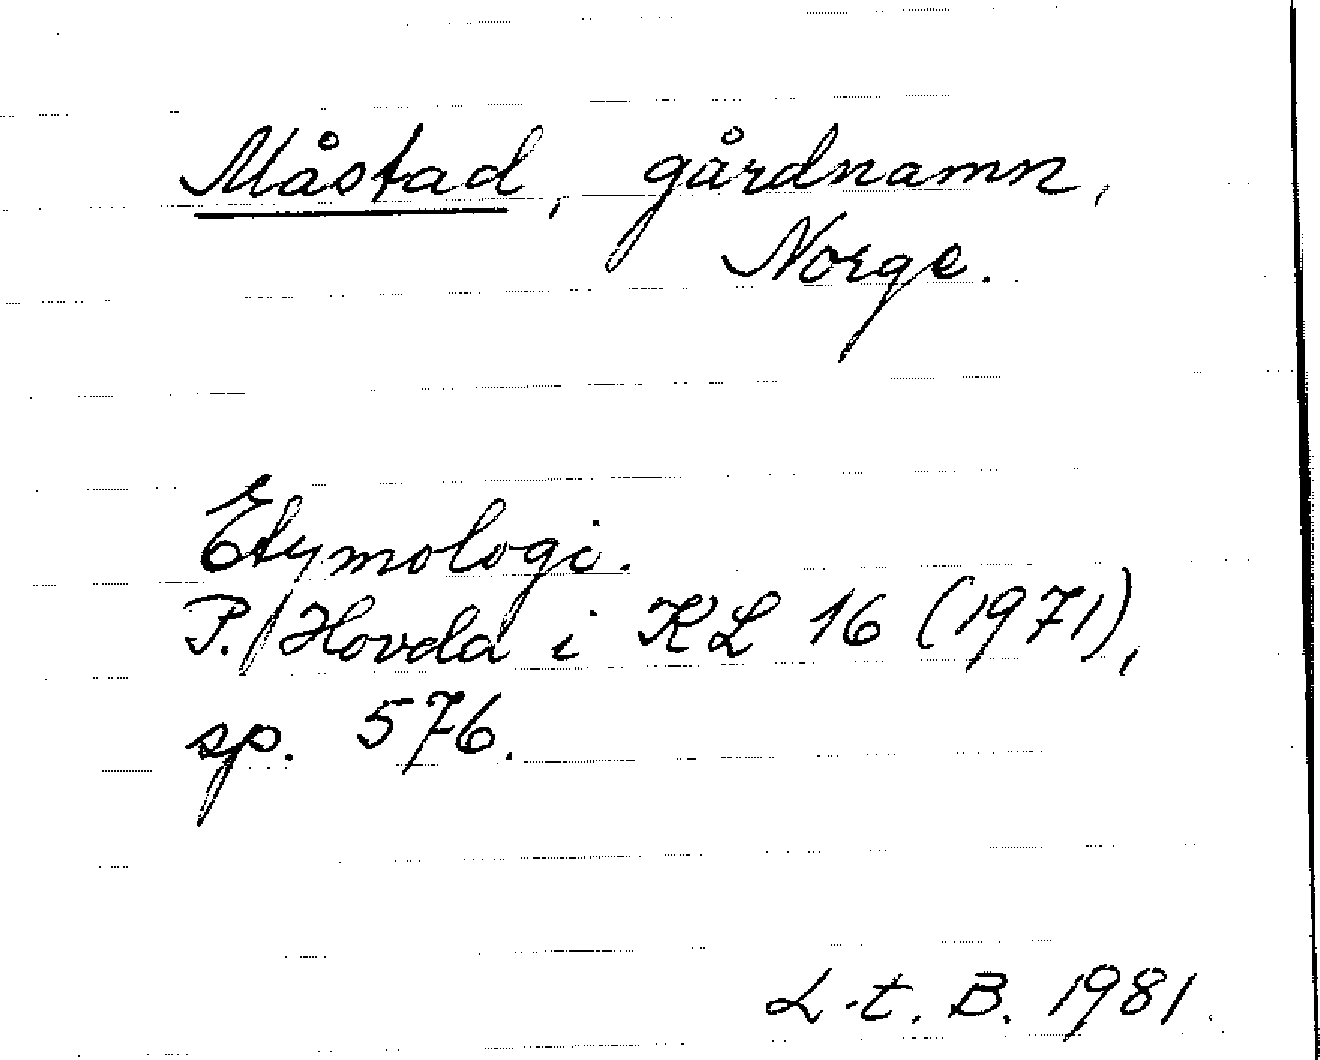 Måstad, gårdnamn,
Norge.
Etymologi.
P. Hovda i KL 16 (1971),
sp. 576.
L-t. B. 1981.